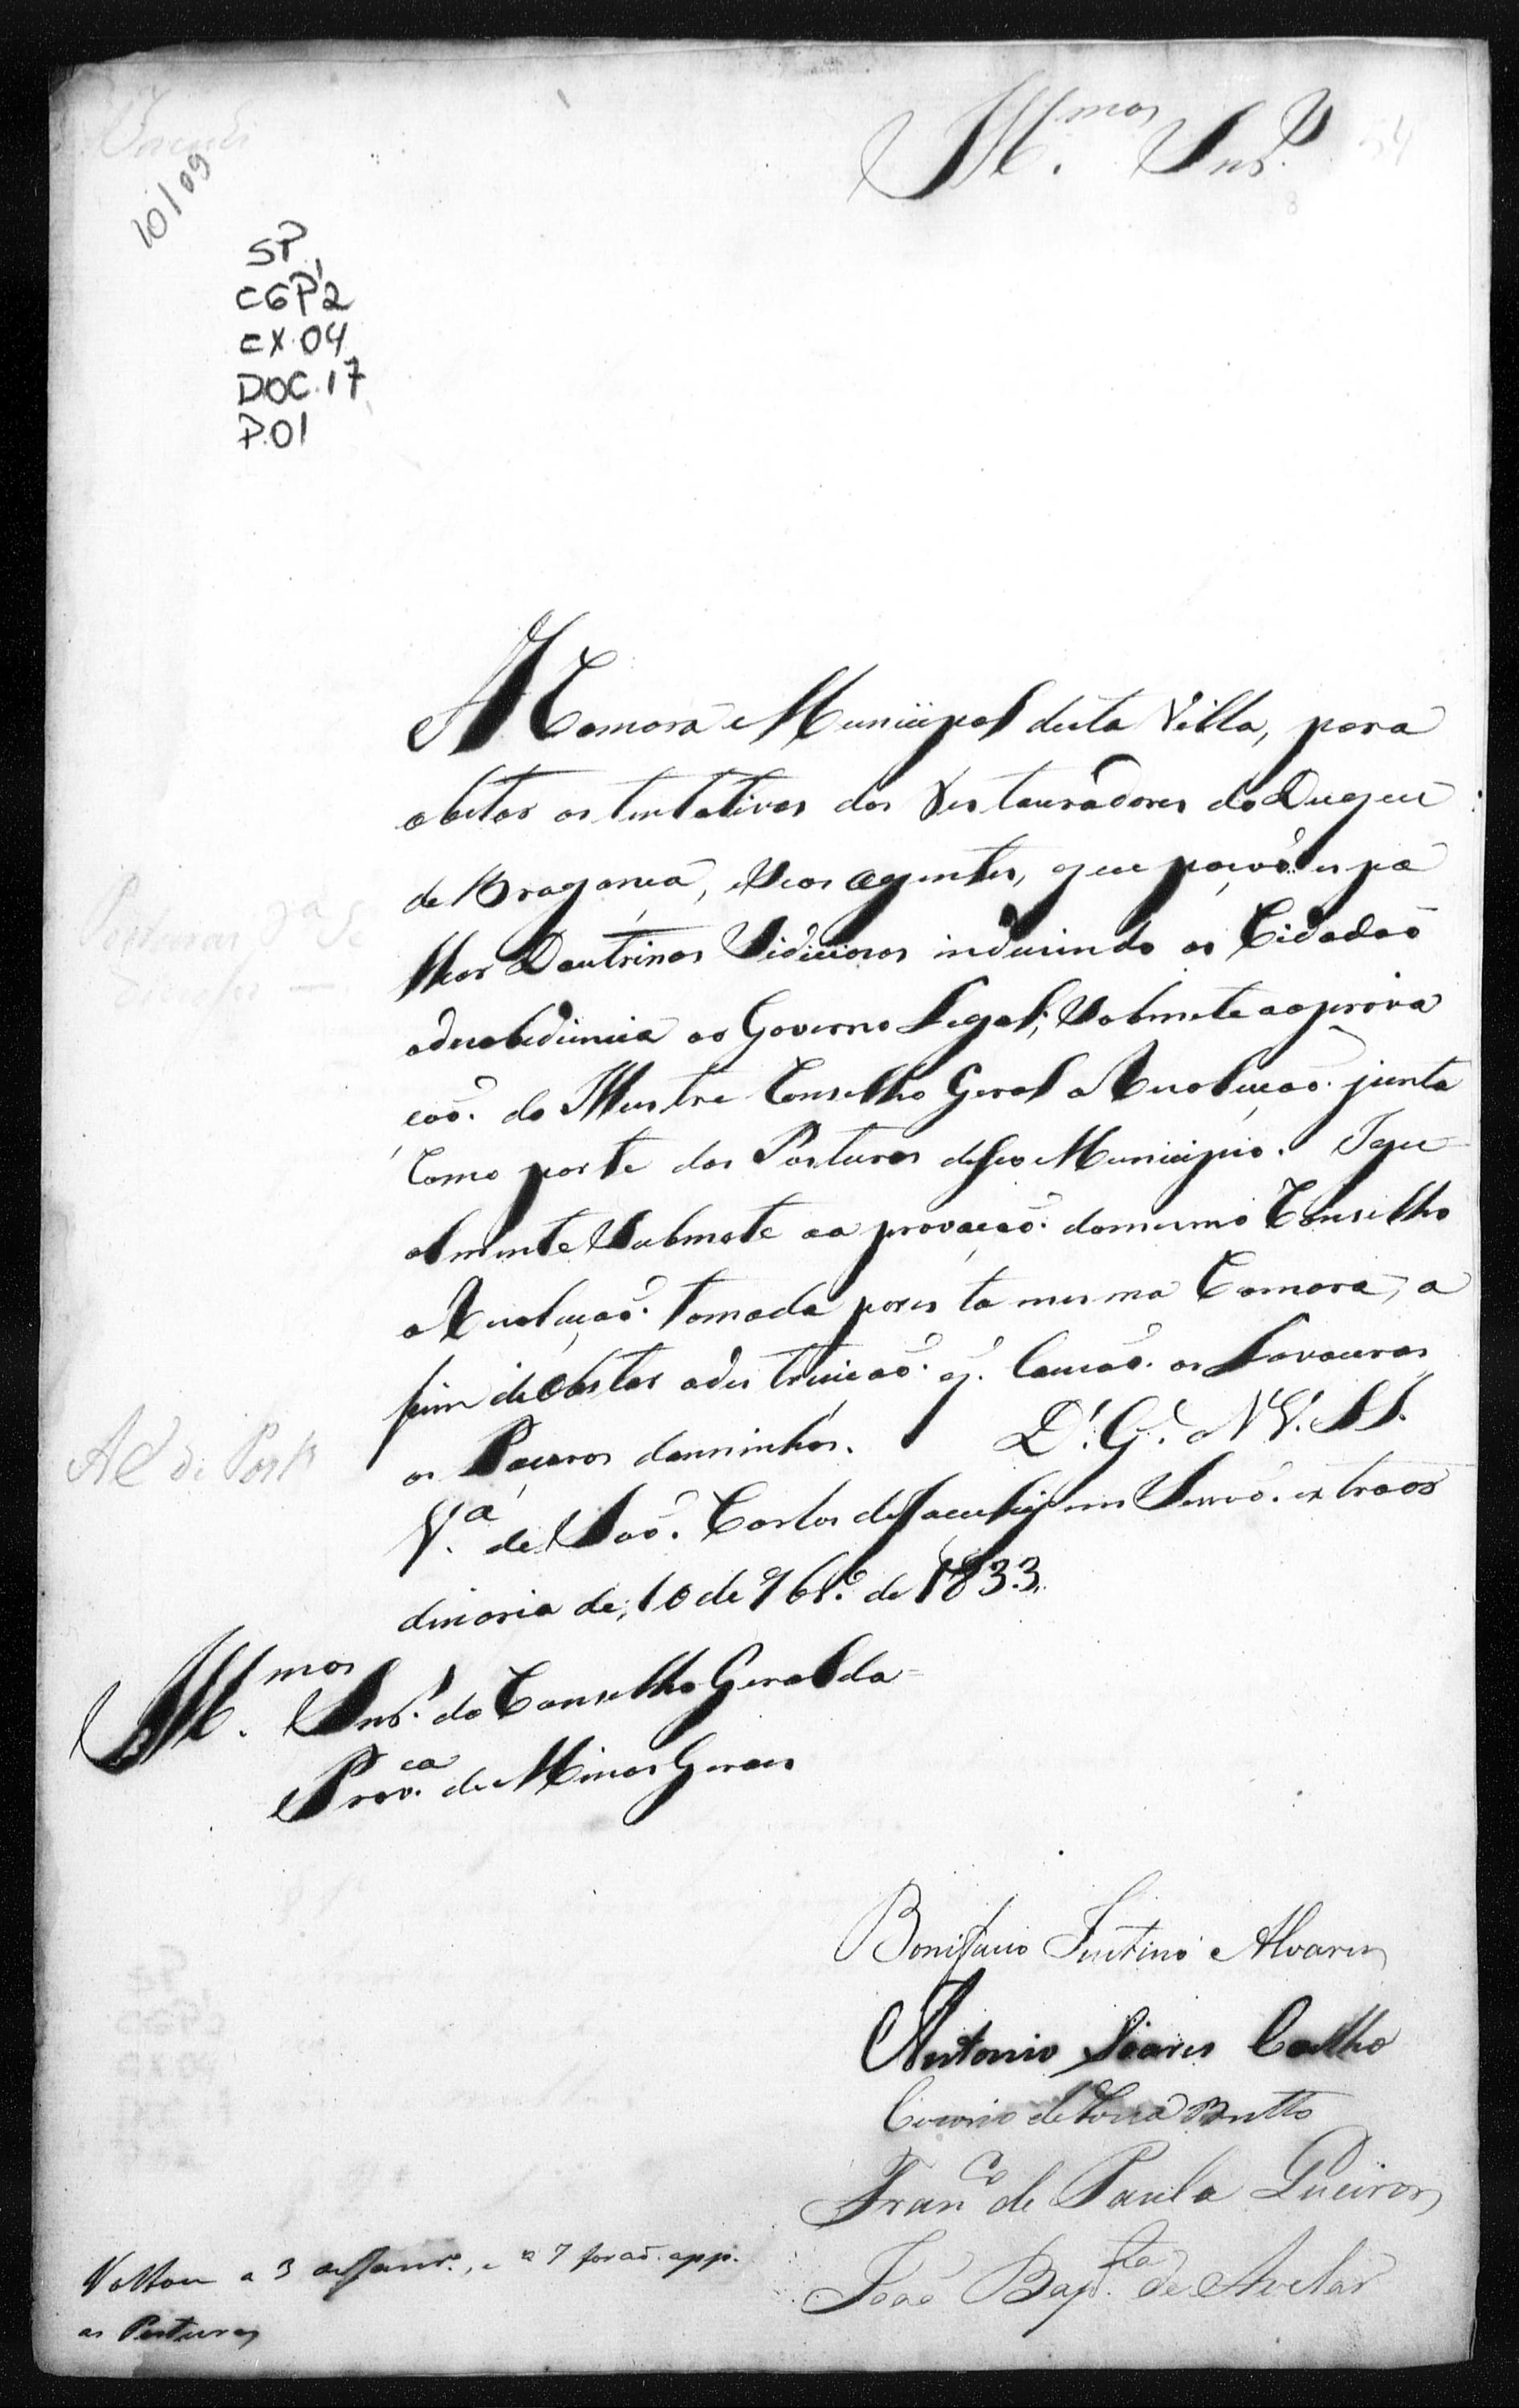 Ill.mos Snr.s
54
10/09
SP
CGP2
CX.04
DOC.17
P.01
A Camara Municipal desta Villa, para
obstar as tentativas dos Restauradores do Duque
de Bragança, e seos agentes, que possão espa
lhar Doutrinas Sidiciosas indusindo os Cidadaõs
a desobediencia ao Governo Legal; Submete a aprova
çaõ. do Illustre Conselho Geral a Resoluçaõ. junta
Como parte das Posturas de seo Municipio. Igu
almente Submete a aprovaçaõ. do mesmo Conselho
a Resoluçaõ. tomada por esta mesma Camara, a
fim de Obstar a destruiçaõ. q. Causaõ. as Lavouras
os Passaros daninhos. D.s G.e a V.V. S.S.
V.a de Saõ. Carlos de Jacuhy em Sessaõ. extraor
dinaria de 10 de 9br.o de 1833.
Ill.mos Snr.s do Conselho Geral da
Prov.ca de Minas Geraes
Posturas
Bonifacio Justino Alvares
Antonio Soares Coelho
de Britto
Fran.co de Paula Queiros
João Bap.ta de Avelar
Voltou a 3 de Janr.o, e a 7 foraõ. app.
as Posturas